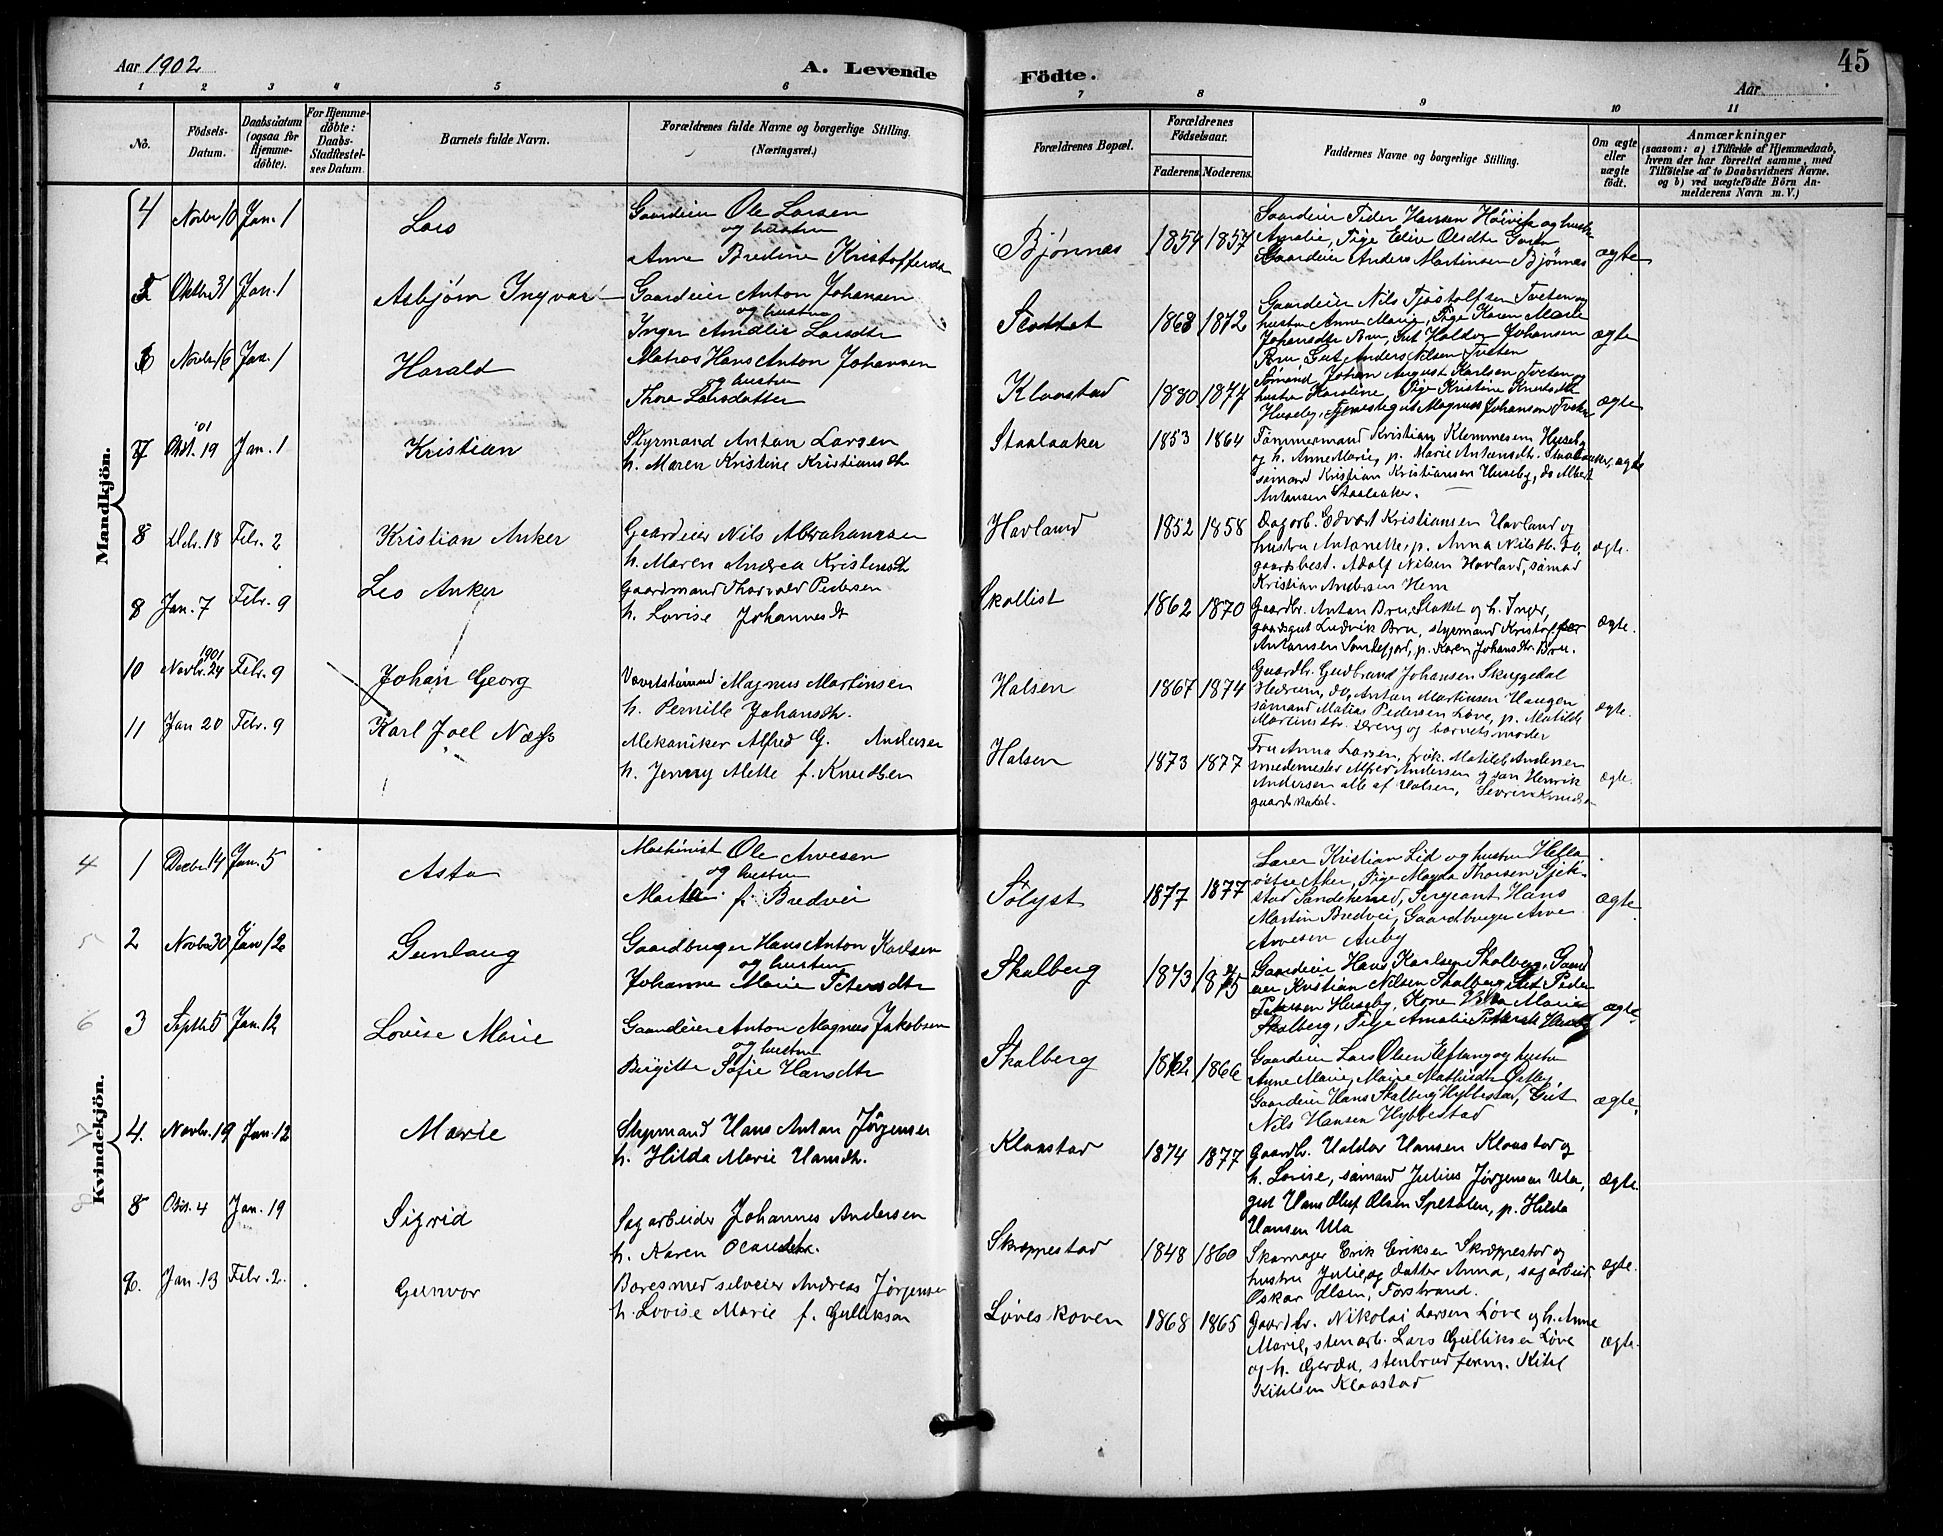 Aar 1902
A. Levende
Födte.
Aar
45
1 2 3 4 5 6 7 8 9 10 11
No.
Födsels-Datum.
Daabsdatum (ogsaa for Hjemmedöbte).
For Hjemmedöbte: Daabs-Stadfæstelses Datum.
Barnets fulde Navn.
Forældrenes fulde Navne og borgerlige Stilling. (Næringsvei.)
Forældrenes Bopæl.
Forældrenes Födselsaar.
Faderens. Moderens.
Faddernes Navne og borgerlige Stilling.
Om ægte eller uægte födt.
Anmærkninger
(saasom: a) i Tilfælde af Hjemmedaab, hvem der har forrettet samme, med Tilföielse af to Daabsvidners Navne. og b) ved uægtefödte Börn Anmelderens Navn m. V.)
Mandkjön.
4 Novbr 10 Jan. 1 Lars
Gaardeier Ole Larsen
og hustru
Anne Bredine Kristoffersdtr
Bjønnes 1854 1857
Gaardeier Peder Hansen Höivik og hustru
Amalie, Pige Elise Olsdtr
Gaardeier Anders Martinsen Bjønnes
ægte
5 Oktbr 31 Jan. 1 Asbjørn Ingvar
Gaardeier Anton Johansen
og hustru
Inger Amalie Larsdtr
Slottet 1868 1872
Gaardeier Nils Tjøstolfsen Tveten og
hustru Anne Marie, Pige Karen Marie
Johansdtr Bru, Gut Haldor Johansen
Bru Gut Anders Nilsen Tveten
ægte
6 Novbr 16 Jan. 1 Harald
Matros Hans Anton Johansen
og hustru
Thora Larsdatter
Klaastad 1880 1877
Sømand Johan August Karlsen Tveten og
hustru Karoline, Pige Kristine Knutsdtr
Huseby, Tjenestegut Magnus Johansen Tveten
ægte
7 Okt. 19 '01 Jan. 1 Kristian
Styrmand Anton Larsen
h. Maren Kristine Kristiansdtr
Staalaaker 1853 1864
Tømmermand Kristian Klemmesen Huseby
og h. Anne Marie, p. Marie Antonsdtr. Staalaaker,
sømand Kristian Kristiansen Huseby, do Albert
Antonsen Staalaaker.
ægte
8 Dcbr. 18 Febr. 2 Kristian Anker
Gaardeier Nils Abrahamsen
h. Maren Andrea Kristensdtr
Havland 1852 1858
Dagarb. Edvart Kristiansen Havland og
hustru Antonette, p. Anna Nilsdtr. do,
gaardsbest. Adolf Nilsen Havland, sømand
Kristian Andersen Hem
ægte.
8 Jan. 7 Febr. 9 Leo Anker
Gaardmand Thorvald Pedersen
h. Lovise Johannesdtr
Skallist 1862 1870
Gaardbr. Anton Bru, Slottet og h. Inger,
gaardsgut Ludvik Bru, styrmand Kristoffer
Antonsen Sandefjord, p. Karen Johansdtr. Bru.
ægte.
10 Novbr. 24 1901 Febr. 9 Johan Georg
Magnus Martinsen
h. Pernille Johansdtr.
Halsen 1867 1874
Gaardbr. Gudbrand Johansen Skyggedal
Hedrum, do, Anton Martinsen Haugen
sømand Matias Pedersen Løve, p. Matilde
Martinsdtr. Vreng og barnets moder
ægte.
11 Jan 20 Febr. 9 Karl Joel Næss
Mekaniker Alfred G. Andersen
h. Jenny Mette f. Knudsen
Halsen 1873 1877
Fru Anna Larsen, frøk. Matilde Andersen
smedemester Alfred Andersen og søn Henrik
Andersen alle af Halsen, Severin Knudsen
ægte.
Kvindekjön.
4 1 Decbr 14 Jan. 5 Asta
Maskinist Ole Arvesen
og hustru
Marta f. Bredvei
Sølyst 1877 1877
Lærer Kristian Lid og hustru Hella
østre Aker, Pige Magda Thorsen Gjekstad
Sandeherred, Sergeant Hans
Martin Bredvei, Gaardbruger Arve
Arvesen Auby
ægte
5 2 Novbr 30 Jan 12 Gunlaug
Gaardbruger Hans Anton Karlsen
og hustru
Johanne Marie Petersdtr
Skalberg 1873 1875
Gaardeier Hans Karlsen Skalberg, Gaardeier
Kristian Nilsen Skalberg, Gut Peder
Petersen Huseby, Kone Marie
Skalberg, Pige Amalie Petersdtr Huseby
ægte.
6 3 Septbr 5 Jan. 12 Lovise Marie
Gaardeier Anton Magnus Jakobsen
og hustru
Birgitte Sofie Hansdtr
Skalberg 1862 1866
Gaardeier Lars Olsen Eftang og hustru
Anne Marie, Marie Mathisdtr Østby,
Gaardeier Hans Skalberg Hybbestad, Gut
Nils Hansen Hybbestad
ægte.
4. Novbr. 19 Jan. 12 Marie
Styrmand Hans Anton Jørgensen
h. Hilda Marie Hansdtr.
Klaastad 1874 1877
Gaardbr. Haldor Hansen Klaastad og
h. Lovise, sømand Julius Jørgensen Ula,
gut Hans Oluf Olsen Spetalen, p. Hilda
Hansen Ula
ægte.
5 4 Jan. 19 Sigrid
Sagarbeider Johannes Andersen
h. Karen
Skræppestad 1848 1860
Skomager Erik Eriksen Skræppestad og
hustru Julie, og datter Anna, sagarbeid.
Oskar Olsen, Forstrand.
ægte.
6. Jan. 13 Febr. 2. Gunvor
Andreas Jørgensen
h. Lovise Marie f. Gulliksen
Løveskoven 1868 1865
Gaardbr. Nikolai Larsen Løve og h. Anne
Marie, stenarb. Lars Gulliksen Løve
og h. Gerda, stenbrudform. Kitil
Kitilsen Klaastad
ægte.